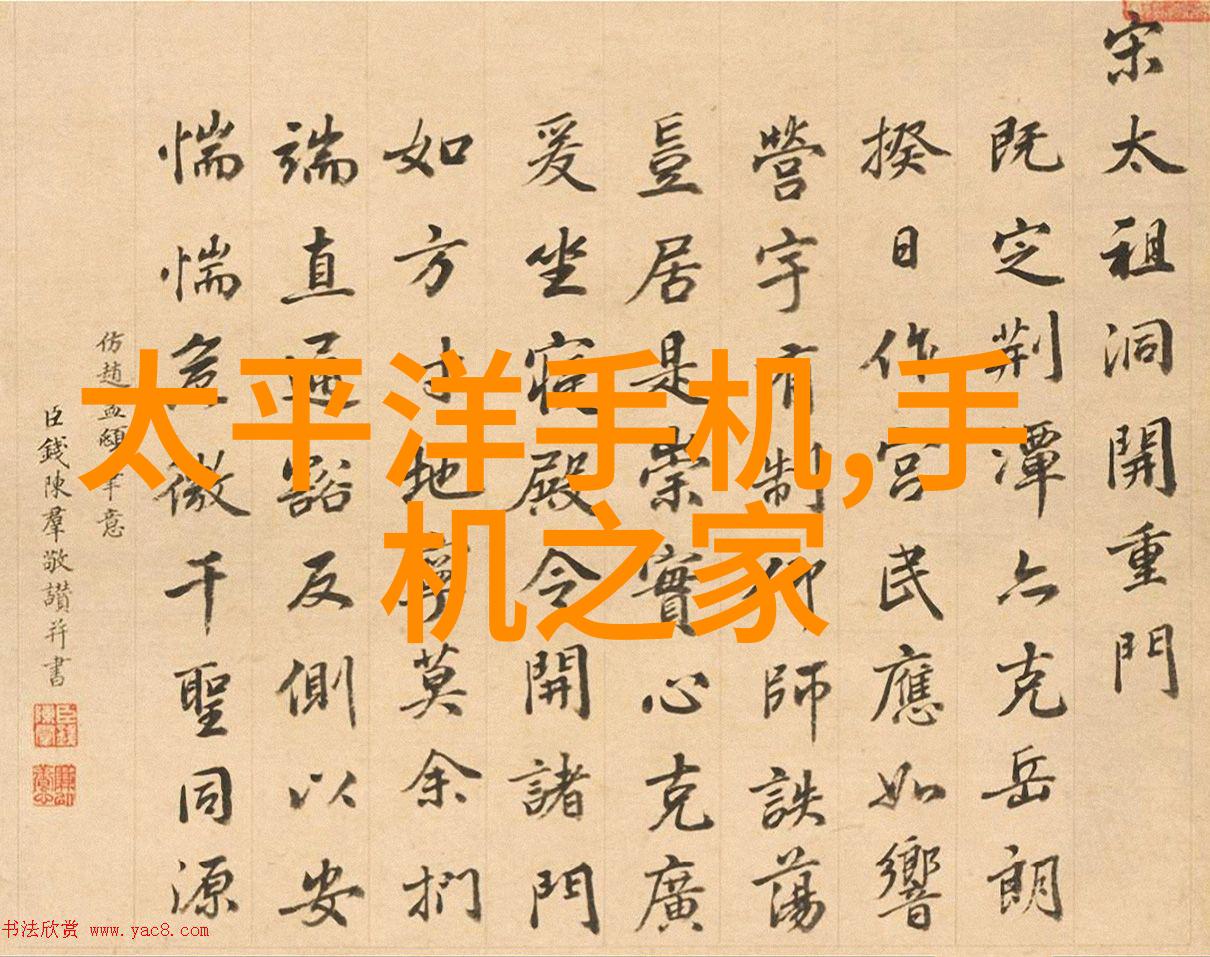 宋太祖洞開重門
既定荆潭亦克岳朗
揆日作宫民應如響
營宇有制仰師訣蕩
豈居是崇實心克廣
爰坐寢殿令開諸門
如方寸地寧莫余捫
端直通豁反側以安
惴惴危微千聖同源
仿趙孟頫筆意
臣錢陳羣敬讃并書
太平洋手机,手
机之家
书法欣赏 www.yac8.com